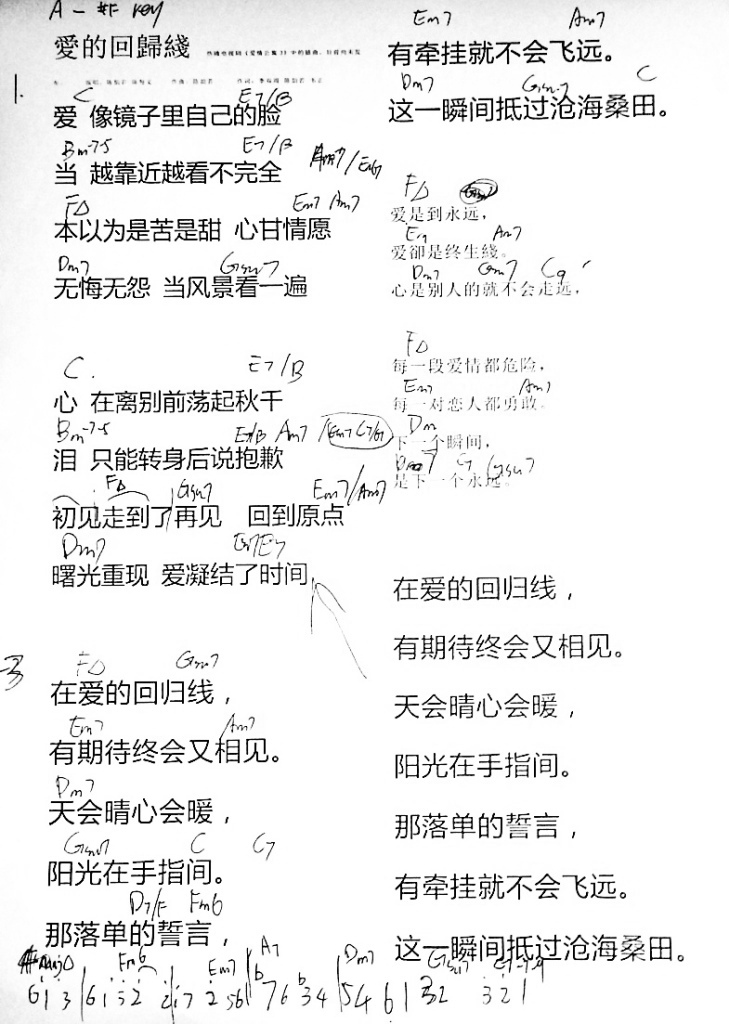 A - #F key
愛的回歸綫
1.
C E7/B
爱 像镜子里自己的脸
Bm7-5 E7/B Am7/Em7
当 越靠近越看不完全
F△ Em7 Am7
本以为是苦是甜 心甘情愿
Dm7 Gsus7
无悔无怨 当风景看一遍
C. E7/B
心 在离别前荡起秋千
Bm7-5 E7/B Am7
泪 只能转身后说抱歉
F△ Gsus7 Em7/Am7
初见走到了再见 回到原点
Dm7
曙光重现 爱凝结了时间
F△ Gsus7
在爱的回归线，
Em7 Am7
有期待终会又相见。
Dm7
天会晴心会暖，
Gsus7 C C7
阳光在手指间。
D7/F Fm6
那落单的誓言，
Fm6 Em7 A7 Dm7 Gsus7
Em7 Am7
有牵挂就不会飞远。
Dm7 Gsus7 C
这一瞬间抵过沧海桑田。
F△
爱是到永远，
Am7
爱卻是终生綫。
Dm7 C9
心是别人的就不会走远，
F△
每一段爱情都危险，
Em7 Am7
每一对恋人都勇敢。
Dm
下一个瞬间，
G Gsus7
是下一个永远。
在爱的回归线，
有期待终会又相见。
天会晴心会暖，
阳光在手指间。
那落单的誓言，
有牵挂就不会飞远。
这一瞬间抵过沧海桑田。